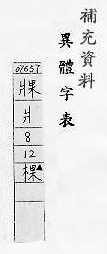 補充資料
異體字表
01657
爿
8
12
棵▲